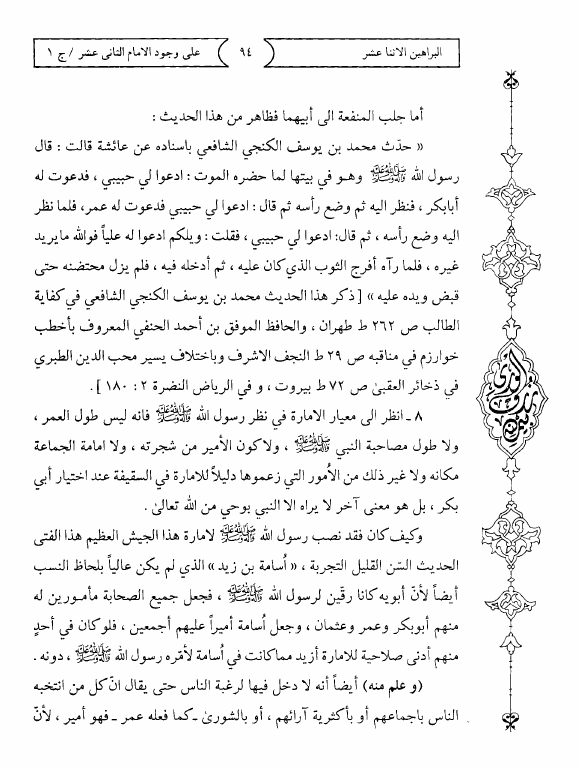 البراهين الاثنا عشر
٩٤
على وجود الامام الثاني عشر / ج ١
أما جلب المنفعة الى أبيهما فظاهر من هذا الحديث :
« حدّث محمد بن يوسف الكنجي الشافعي باسناده عن عائشة قالت : قال
رسول الله ﷺ وهو في بيتها لما حضره الموت : ادعوا لي حبيبي ، فدعوت له
أبابكر ، فنظر اليه ثم وضع رأسه ثم قال : ادعوا لي حبيبي فدعوت له عمر، فلما نظر
اليه وضع رأسه ، ثم قال: ادعوا لي حبيبي ، فقلت : ويلكم ادعوا له علياً فوالله مايريد
غيره ، فلما رآه أفرج الثوب الذي كان عليه ، ثم أدخله فيه ، فلم يزل محتضنه حتى
قبض ويده عليه » [ ذكر هذا الحديث محمد بن يوسف الكنجي الشافعي في كفاية
الطالب ص ٢٦٢ ط طهران ، والحافظ الموفق بن أحمد الحنفي المعروف بأخطب
خوارزم في مناقبه ص ٢٩ ط النجف الاشرف وباختلاف يسير محب الدين الطبري
في ذخائر العقبىٰ ص ٧٢ ط بيروت ، و في الرياض النضرة ٢ : ١٨٠ ] .
٨ ـ انظر الى معيار الامارة في نظر رسول الله ﷺ فانه ليس طول العمر ،
ولا طول مصاحبة النبي ﷺ ، ولاكون الأمير من شجرته ، ولا امامة الجماعة
مكانه ولا غير ذلك من الأمور التي زعموها دليلاً للامارة في السقيفة عند اختيار أبي
بكر ، بل هو معنى آخر لا يراه الا النبي بوحي من الله تعالىٰ .
وكيف كان فقد نصب رسول الله ﷺ لامارة هذا الجيش العظيم هذا الفتى
الحديث السّن القليل التجربة ، « أسامة بن زيد» الذي لم يكن عالياً بلحاظ النسب
أيضاً لأنّ أبويه كانا رقّين لرسول الله ﷺ ، فجعل جميع الصحابة مأمورين له
منهم أبوبكر وعمر وعثمان ، وجعل أسامة أميراً عليهم أجمعين ، فلو كان في أحدٍ
منهم أدنى صلاحية للامارة أزيد مما كانت في أسامة لأمّره رسول الله ﷺ ، دونه .
(و علم منه) أيضاً أنه لا دخل فيها لرغبة الناس حتى يقال انّ كل من انتخبه
الناس باجماعهم أو بأكثرية آرائهم ، أو بالشورىٰ ـ كما فعله عمر ـ فهو أمير ، لأنّ